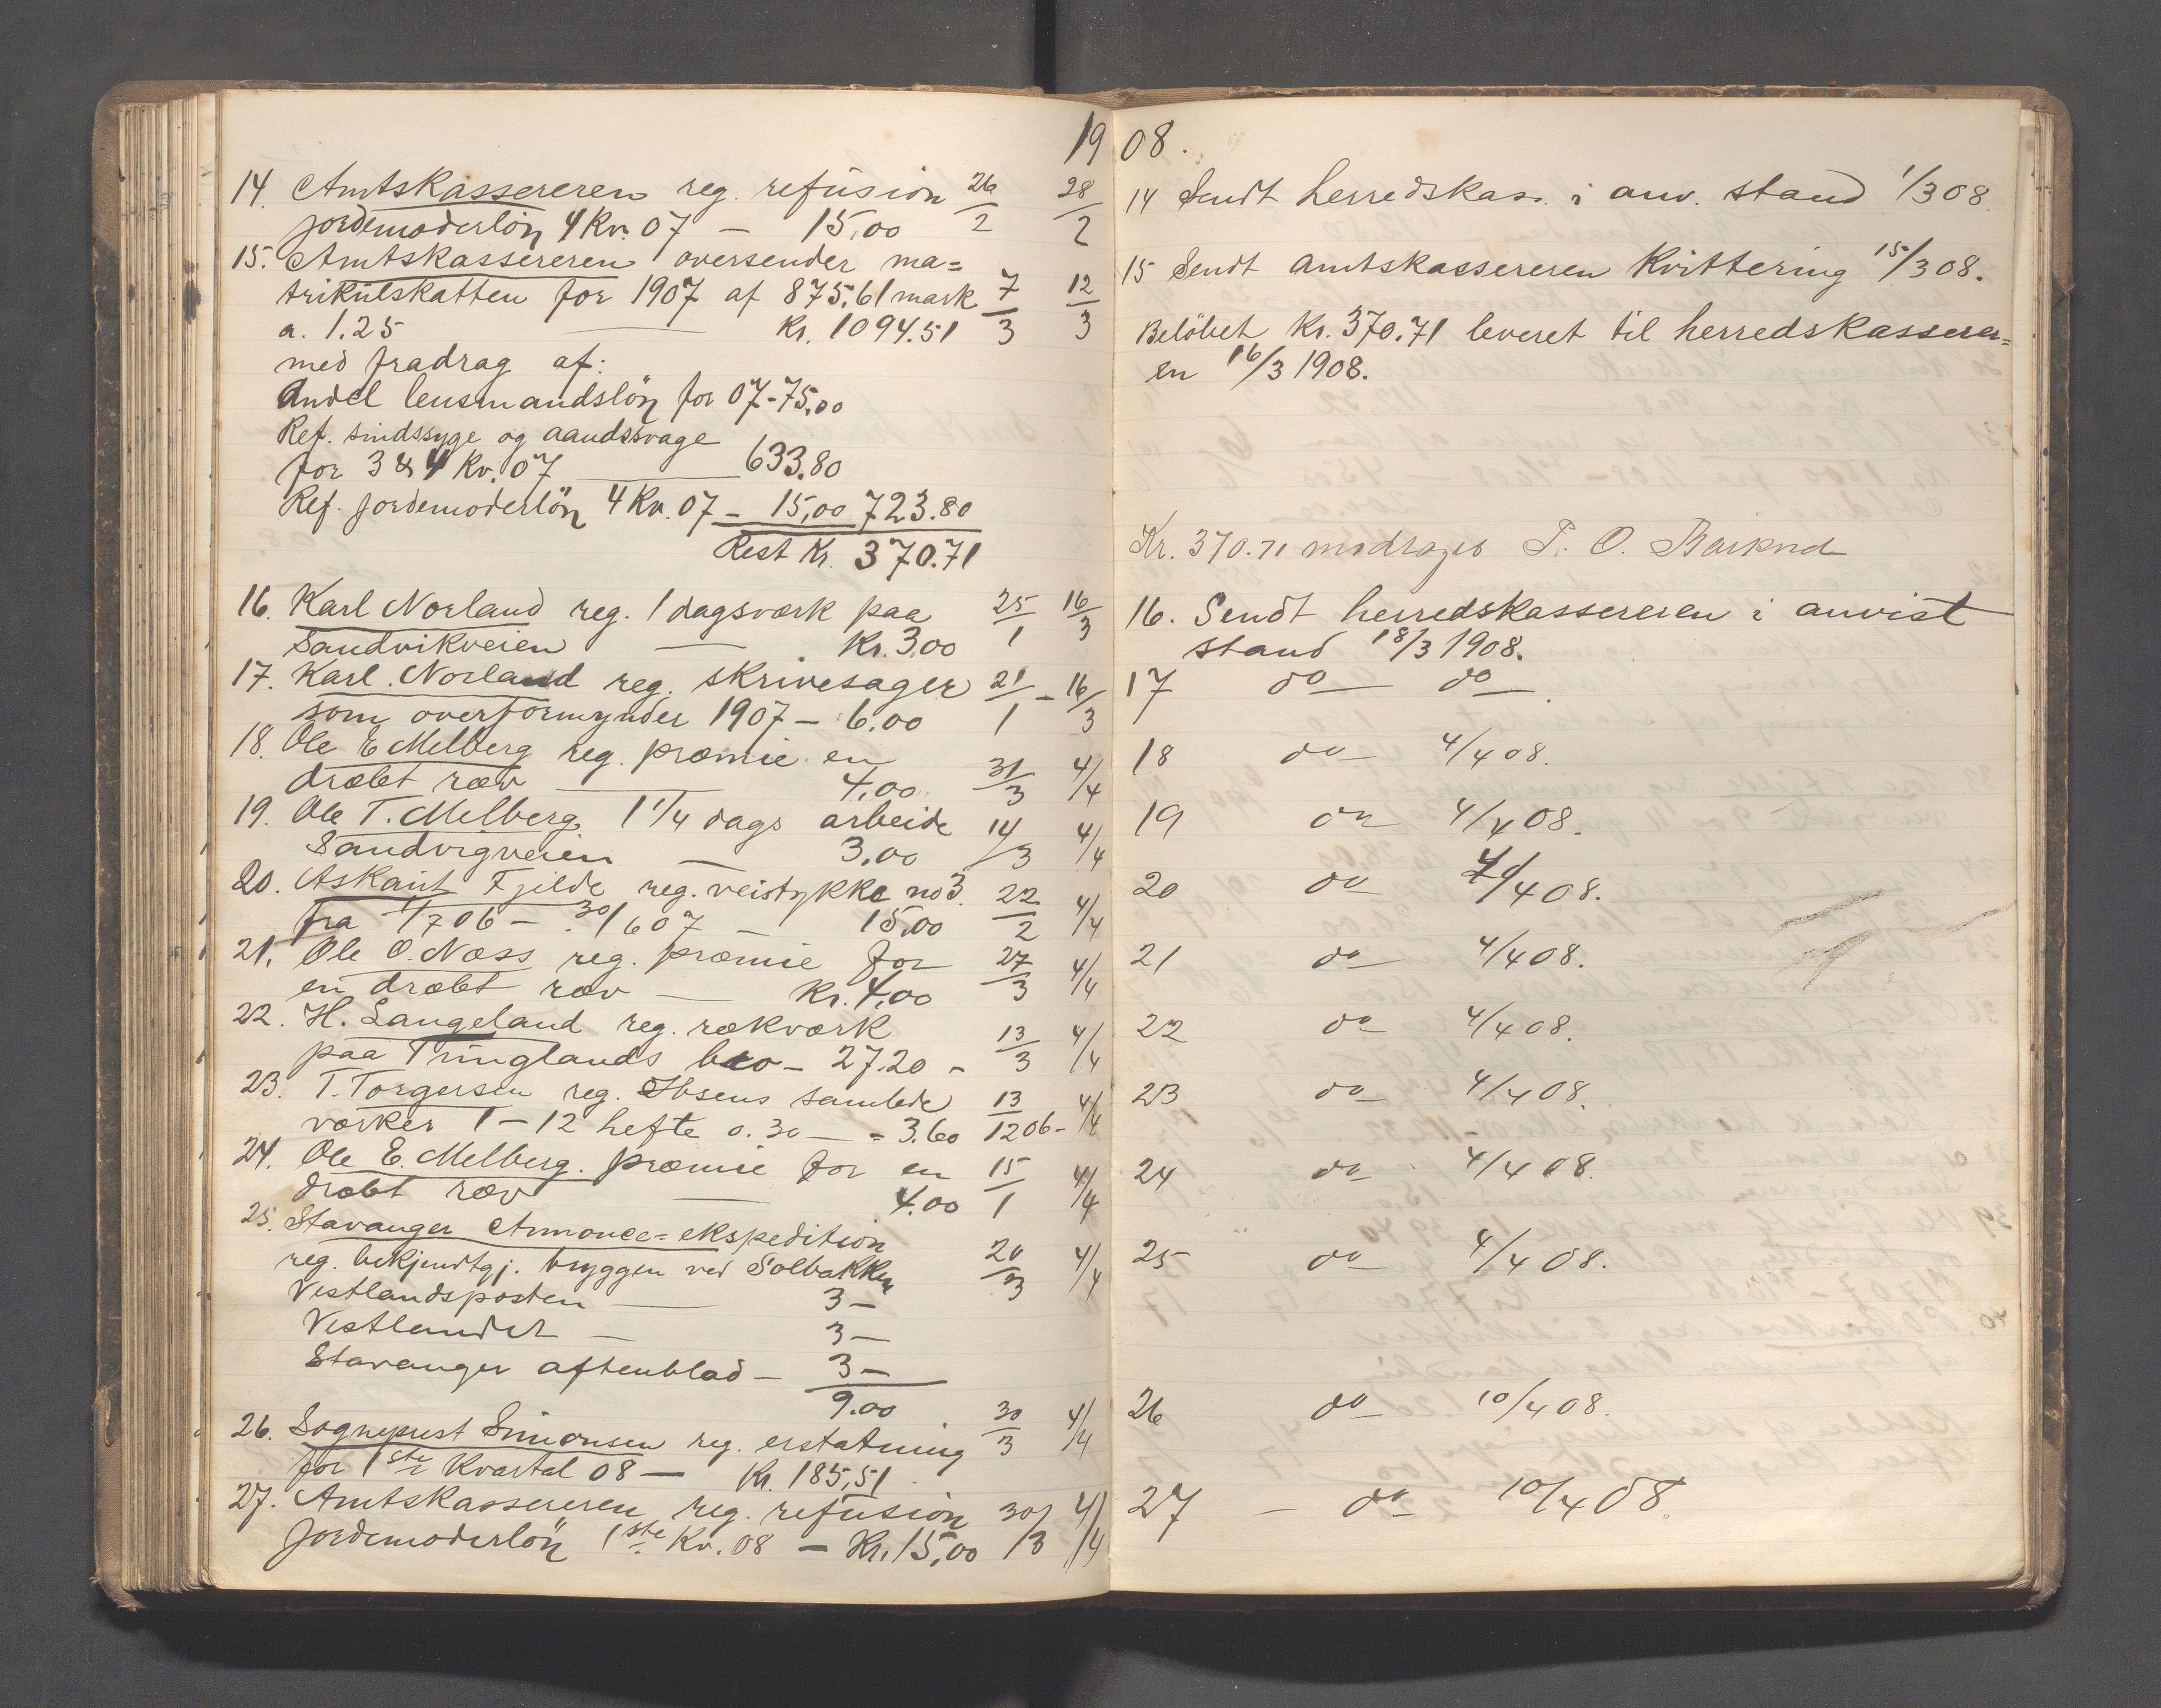 1908.
14. Amtskassereren reg. refusion 26/2 28/2
jordemoderlön 4 Kv. 07 — 15,00
15. Amtskassereren oversender ma=
trikulskatten for 1907 af 875,61 mark 7/3 12/3
a. 1.25 — Kr. 1094.51
med fradrag af:
Andel lensmandslön for 07 - 75,00
Ref. sindssyge og aandssvage
for 3 & 4 Kv. 07 — 633.80
Ref. jordemoderlön 4 Kv. 07 — 15,00 723.80
Rest Kr. 370.71
16. Karl Norland reg. 1 dagsværk paa 25/1 16/3
Sandvikveien — Kr. 3.00
17. Karl Norland reg. skrivesager 21/1 - 16/3
som overformynder 1907 — 6.00
18. Ole E Melberg reg. præmie en
dræbt ræv — 4,00 31/3 4/4
19. Ole T. Melberg 1 1/4 dags arbeide 14/3 4/4
Sandvigveien — 3,00
20. Askaut Fjilde reg. veistykke no 3. 22/2 4/4
fra 1/7 06 — 30/6 07 — 15,00
21. Ole O. Næss reg. præmie for 27/3 4/4
en dræbt ræv — Kr. 4,00
22. H. Langeland reg. rækværk 13/3 4/4
paa Tringlands bro — 27.20 -
23. T. Torgersen reg. Ibsens samlede 13/12 06 - 4/4
værker 1 - 12 hefte 0.30 — = 3.60
24. Ole E. Melberg. præmie for en 15/1 4/4
dræbt ræv — 4.00
25. Stavanger Annonce=ekspedition
reg. bekjendtgj. bryggen ved Solbakken 20/3 4/4
Vestlandsposten — 3 —
Vestlandet — 3 —
Stavanger aftenblad — 3 —
9.00
26. Sogneprest Simonsen reg. erstatning 30/3 4/4
for 1ste Kvartal 08 — Kr. 185,51
27. Amtskassereren reg. refusion 30/3 4/4
Jordemoderlön 1ste Kv. 08 — Kr. 15,00
14 Sendt herredskas. i anv. stand 1/3 08.
15 Sendt amtskassereren Kvittering 15/3 08.
Belöbet Kr. 370.71 leveret til herredskasserer=
en 16/3 1908.
Kr. 370.71 modtages T. O.
16. Sendt herredskassereren i anvist
stand 18/3 1908.
17 do — do —.
18 do — 4/4 08.
19 do 4/4 08.
20 do 4/4 08.
21 do 4/4 08.
22 do 4/4 08.
23 do 4/4 08.
24 do 4/4 08.
25 do 4/4 08.
26 do 10/4 08.
27 — do 10/4 08.